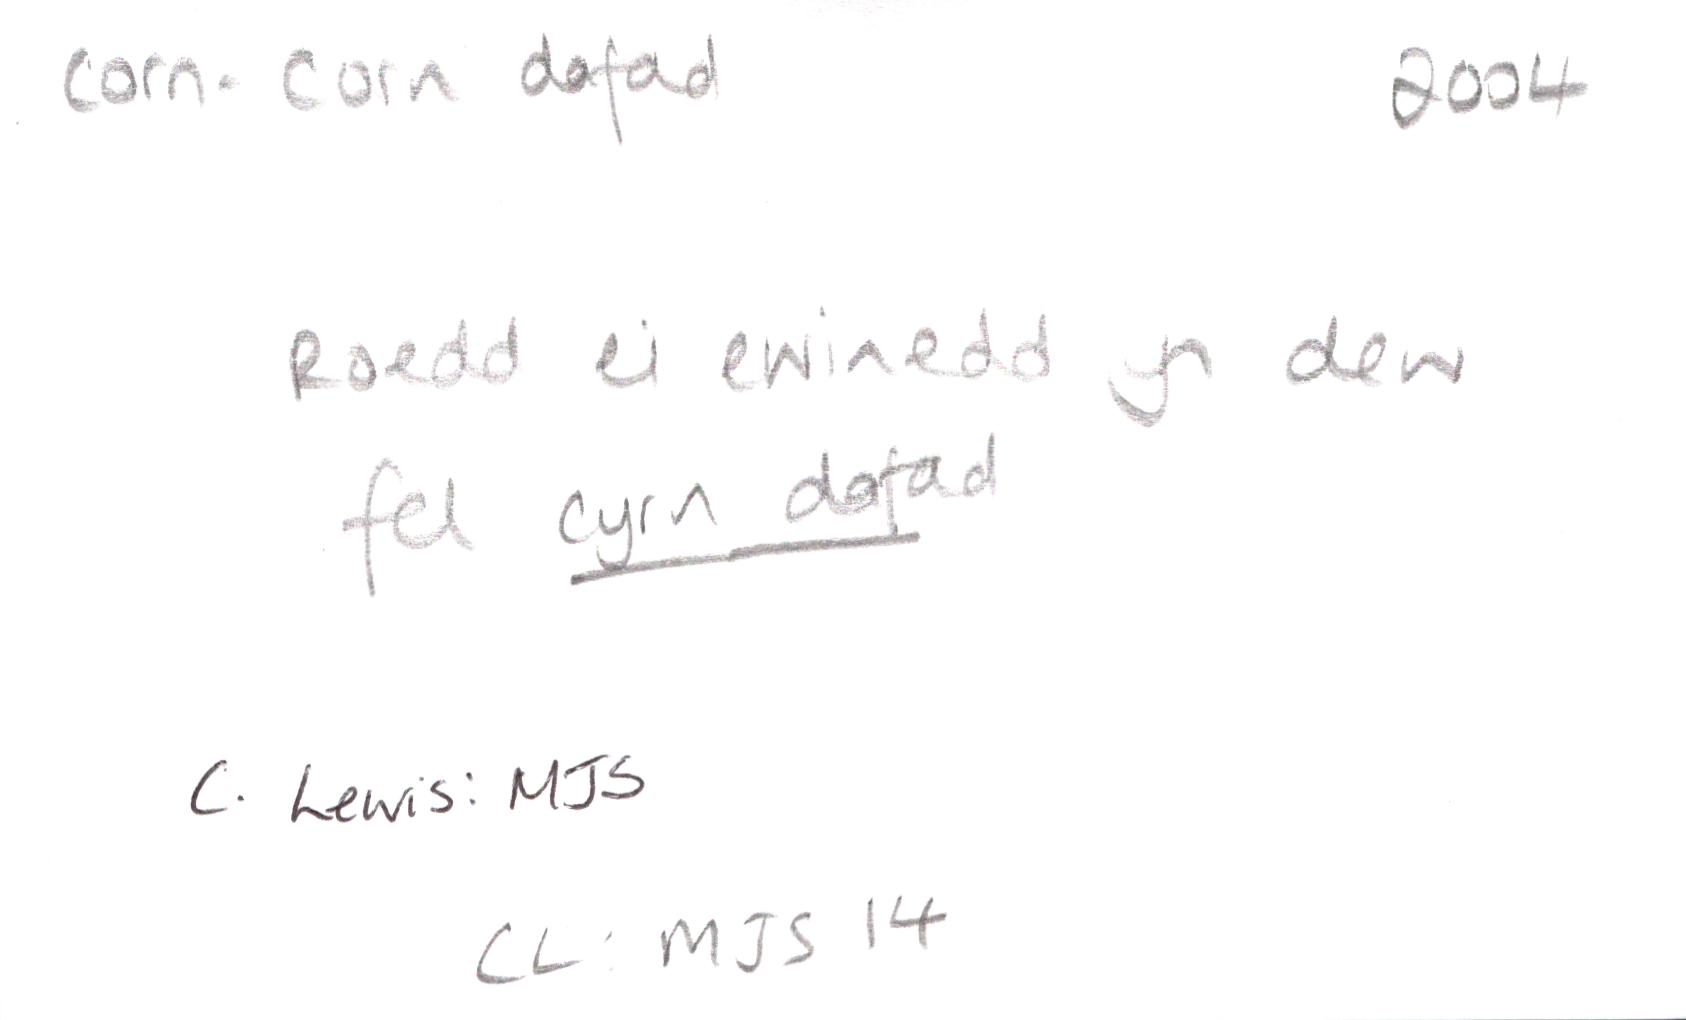 Corn. Corn dafad 2004
Roedd ei ewinedd yn dew
fel cyrn dafad
C. Lewis: MJS
CL: MJS 14